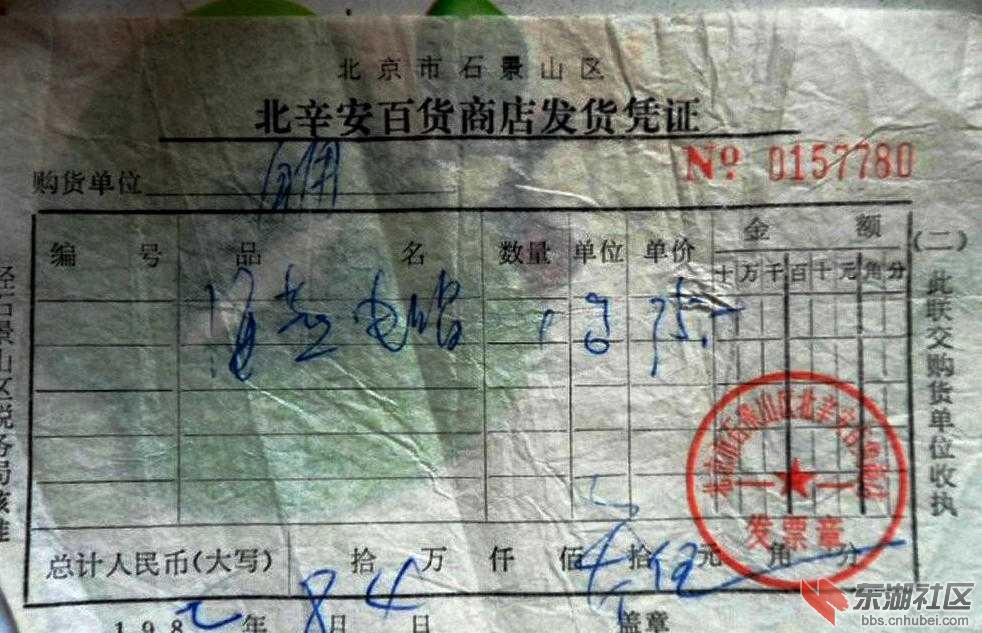 北京市石景山区
北辛安百货商店发货凭证
购货单位 自用
№ 0157780
编号 品名 数量 单位 单价 金额
十万千百十元角分
海燕电 1 台 75
(二)此联交购货单位收执
经石景山区税务局核准
北京市石景山区北辛安百货商店
发票章
总计人民币(大写) 拾 万 仟 佰 拾 伍 元 角 分
198 年 8 月 4 日 盖章
东湖社区
bbs.cnhubei.com